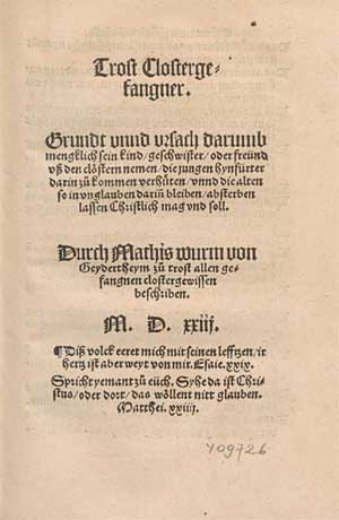 Trost Closterge⸗
fangner.
Grundt vnnd vrsach darumb
mengklich sein kind/ geschwister/ oder freünd
vß den clöstern nemen/ die jungen hynfürter
darin zů kommen verhüten/ vnnd die alten
so in vnglauben dariñ bleiben/ absterben
lassen Christlich mag vnd soll.
Durch Mathis wurm von
Geydertheym zů trost allen ge⸗
fangnen clostergewissen
beschriben.
M. D. xxiij.
¶ Diß volck eeret mich mit seinen lefftzen/ ir
hertz ist aber weyt von mir. Esaie. xxix.
Spricht yemant zů eüch. Syhe da ist Chri⸗
stus/ oder dort/ das wöllent nitt glauben.
Matthei. xxiiij.
409726